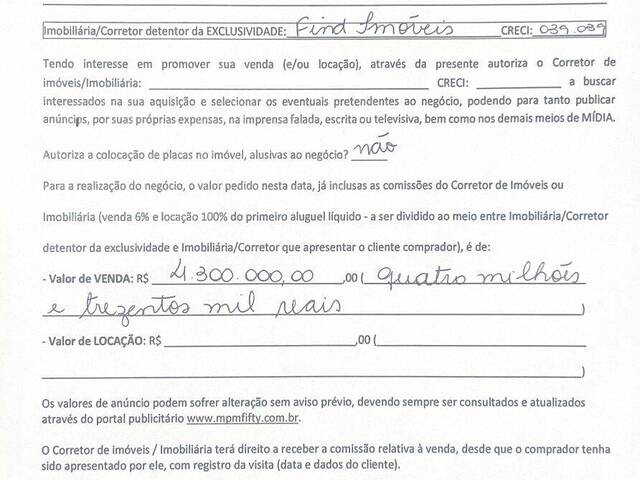 Imobiliária/Corretor detentor da EXCLUSIVIDADE: Find Imóveis CRECI: 039.039
Tendo interesse em promover sua venda (e/ou locação), através da presente autoriza o Corretor de
imóveis/Imobiliária: ____________ CRECI: ____________ a buscar
interessados na sua aquisição e selecionar os eventuais pretendentes ao negócio, podendo para tanto publicar
anúncios, por suas próprias expensas, na imprensa falada, escrita ou televisiva, bem como nos demais meios de MÍDIA.
Autoriza a colocação de placas no imóvel, alusivas ao negócio? não
Para a realização do negócio, o valor pedido nesta data, já inclusas as comissões do Corretor de Imóveis ou
Imobiliária (venda 6% e locação 100% do primeiro aluguel líquido - a ser dividido ao meio entre Imobiliária/Corretor
detentor da exclusividade e Imobiliária/Corretor que apresentar o cliente comprador), é de:
- Valor de VENDA: R$ 4.300.000,00 ,00 ( quatro milhões
e trezentos mil reais )
- Valor de LOCAÇÃO: R$ ____________ ,00 ( ____________
____________ )
Os valores de anúncio podem sofrer alteração sem aviso prévio, devendo sempre ser consultados e atualizados
através do portal publicitário www.mpmfifty.com.br.
O Corretor de imóveis / Imobiliária terá direito a receber a comissão relativa à venda, desde que o comprador tenha
sido apresentado por ele, com registro da visita (data e dados do cliente).